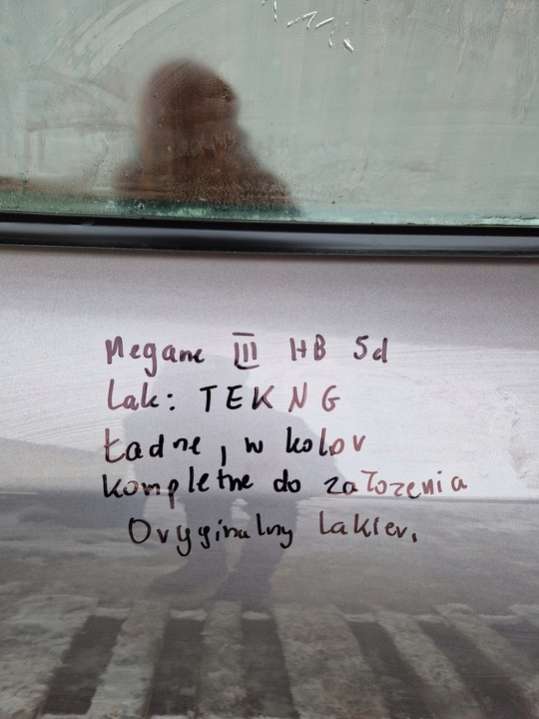 Megane III HB 5d
Lak: TEKNG
Ładne, w kolor
kompletne do założenia
Oryginalny lakier.